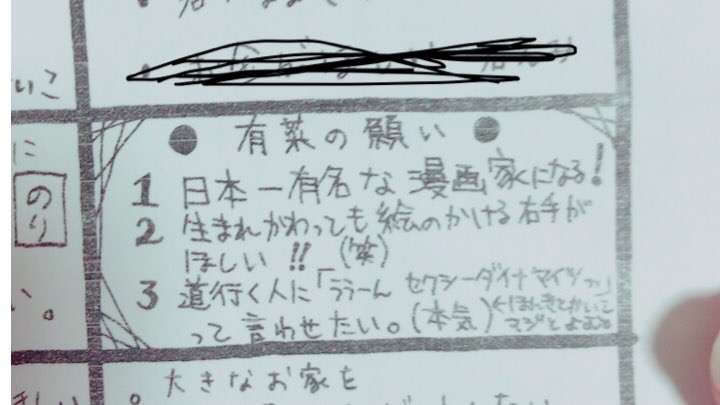 いこ
に
のり
い。
● 有菜の願い ●
1 日本一有名な漫画家になる!
2 生まれかわっても絵のかける右手が
ほしい!! (笑)
3 道行く人に「ララーん セクシーダイナマイツっ」
って言わせたい。(本気)←ほんきとかいて
マジとよむ
大きなお家を